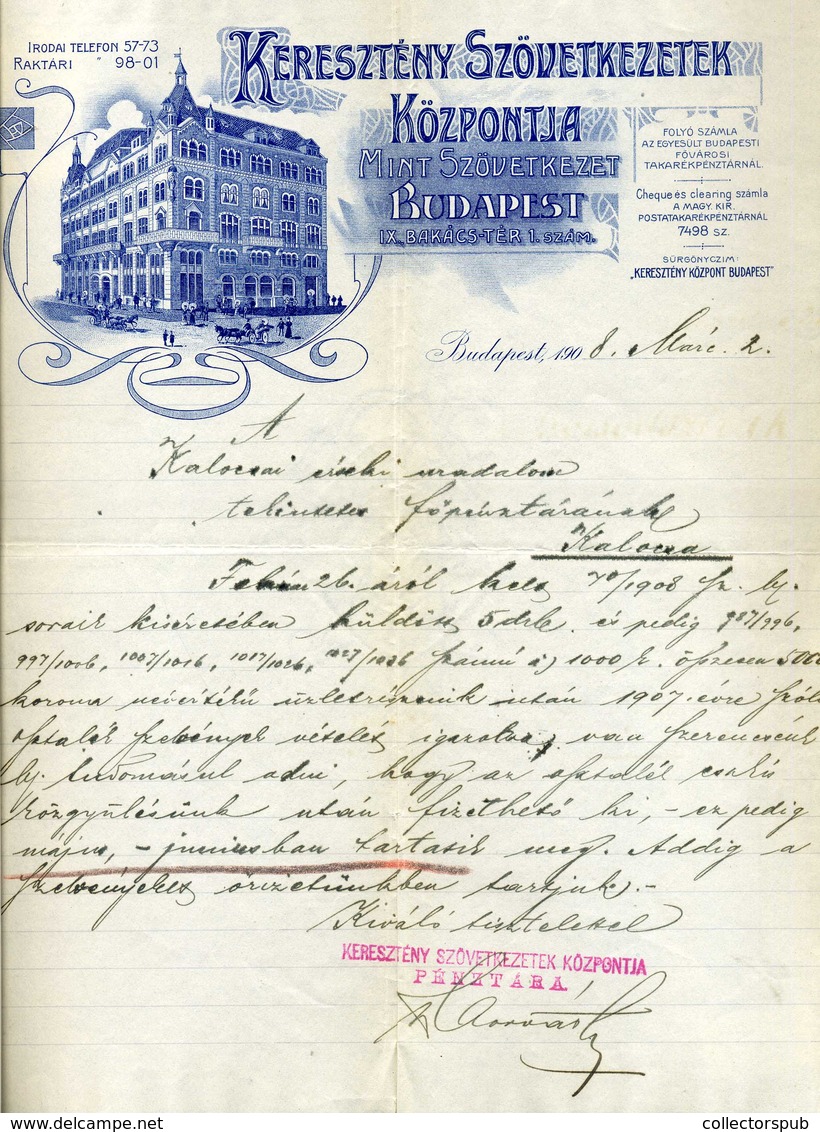 IRODAI TELEFON 57-73
RAKTÁRI " 98-01
KERESZTÉNY SZÖVETKEZETEK
KÖZPONTJA
MINT SZÖVETKEZET
BUDAPEST
IX., BAKÁCS-TÉR 1. SZÁM.
FOLYÓ SZÁMLA
AZ EGYESÜLT BUDAPESTI
FŐVÁROSI
TAKARÉKPÉNZTÁRNÁL.
Cheque és clearing számla
A MAGY. KIR.
POSTATAKARÉKPÉNZTÁRNÁL
7498 SZ.
SÜRGÖNYCZIM:
"KERESZTÉNY KÖZPONT BUDAPEST"
Budapest, 1908. Márc. 2.
A
Kalocsai érseki uradalom
tekintetes főpénztárának
Kalocsa
26.-áról kelt 70/1908 sz. b.
soraik kiséretében küldött 5 drb. és pedig 987/996,
997/1006, 1007/1016, 1017/1026, 1027/1036 számú á 1000 k. összesen 5000
korona névértékű üzletrészeink után 1907. évre szóló
osztalék szelvények vételét igazolva, van szerencsénk
b. tudomásul adni, hogy az osztalék csakis
közgyűlésünk után fizethető ki, - ez pedig
május, - juniusban tartatik meg. Addig a
szelvényeket őrizetünkben tartjuk. -
Kiváló tisztelettel
KERESZTÉNY SZÖVETKEZETEK KÖZPONTJA
PÉNZTÁRA
collectorspub